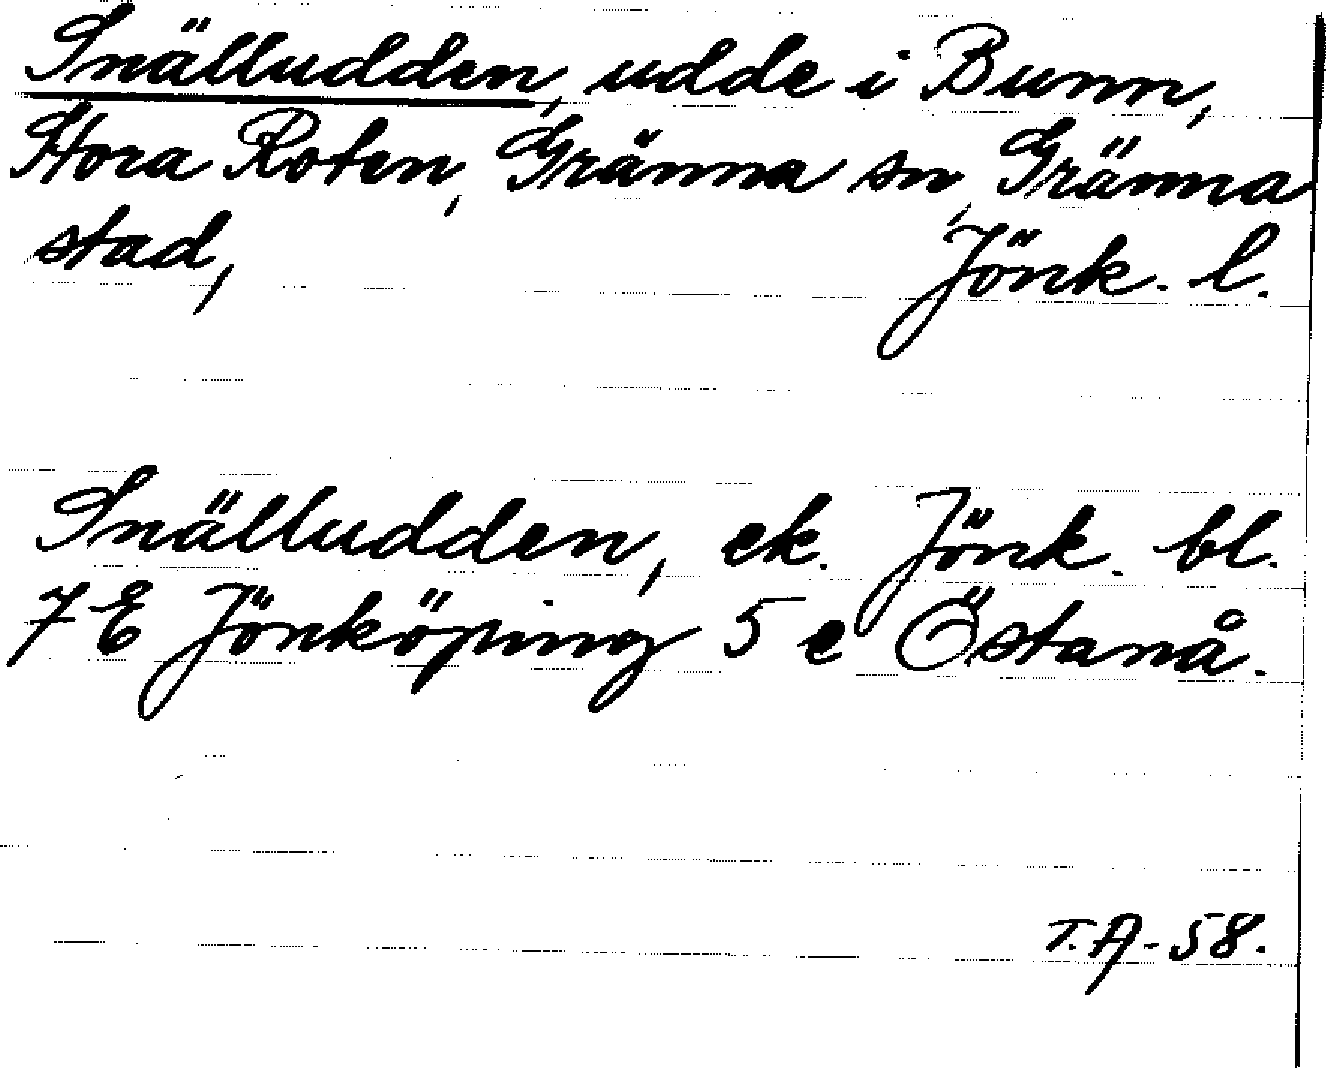 Snälludden, udde i Bunn,
Stora Roten, Gränna sn, Gränna
stad, Jönk. l.
Snälludden, ek. Jönk. bl.
7 E Jönköping 5 e Östanå.
T.A-58.